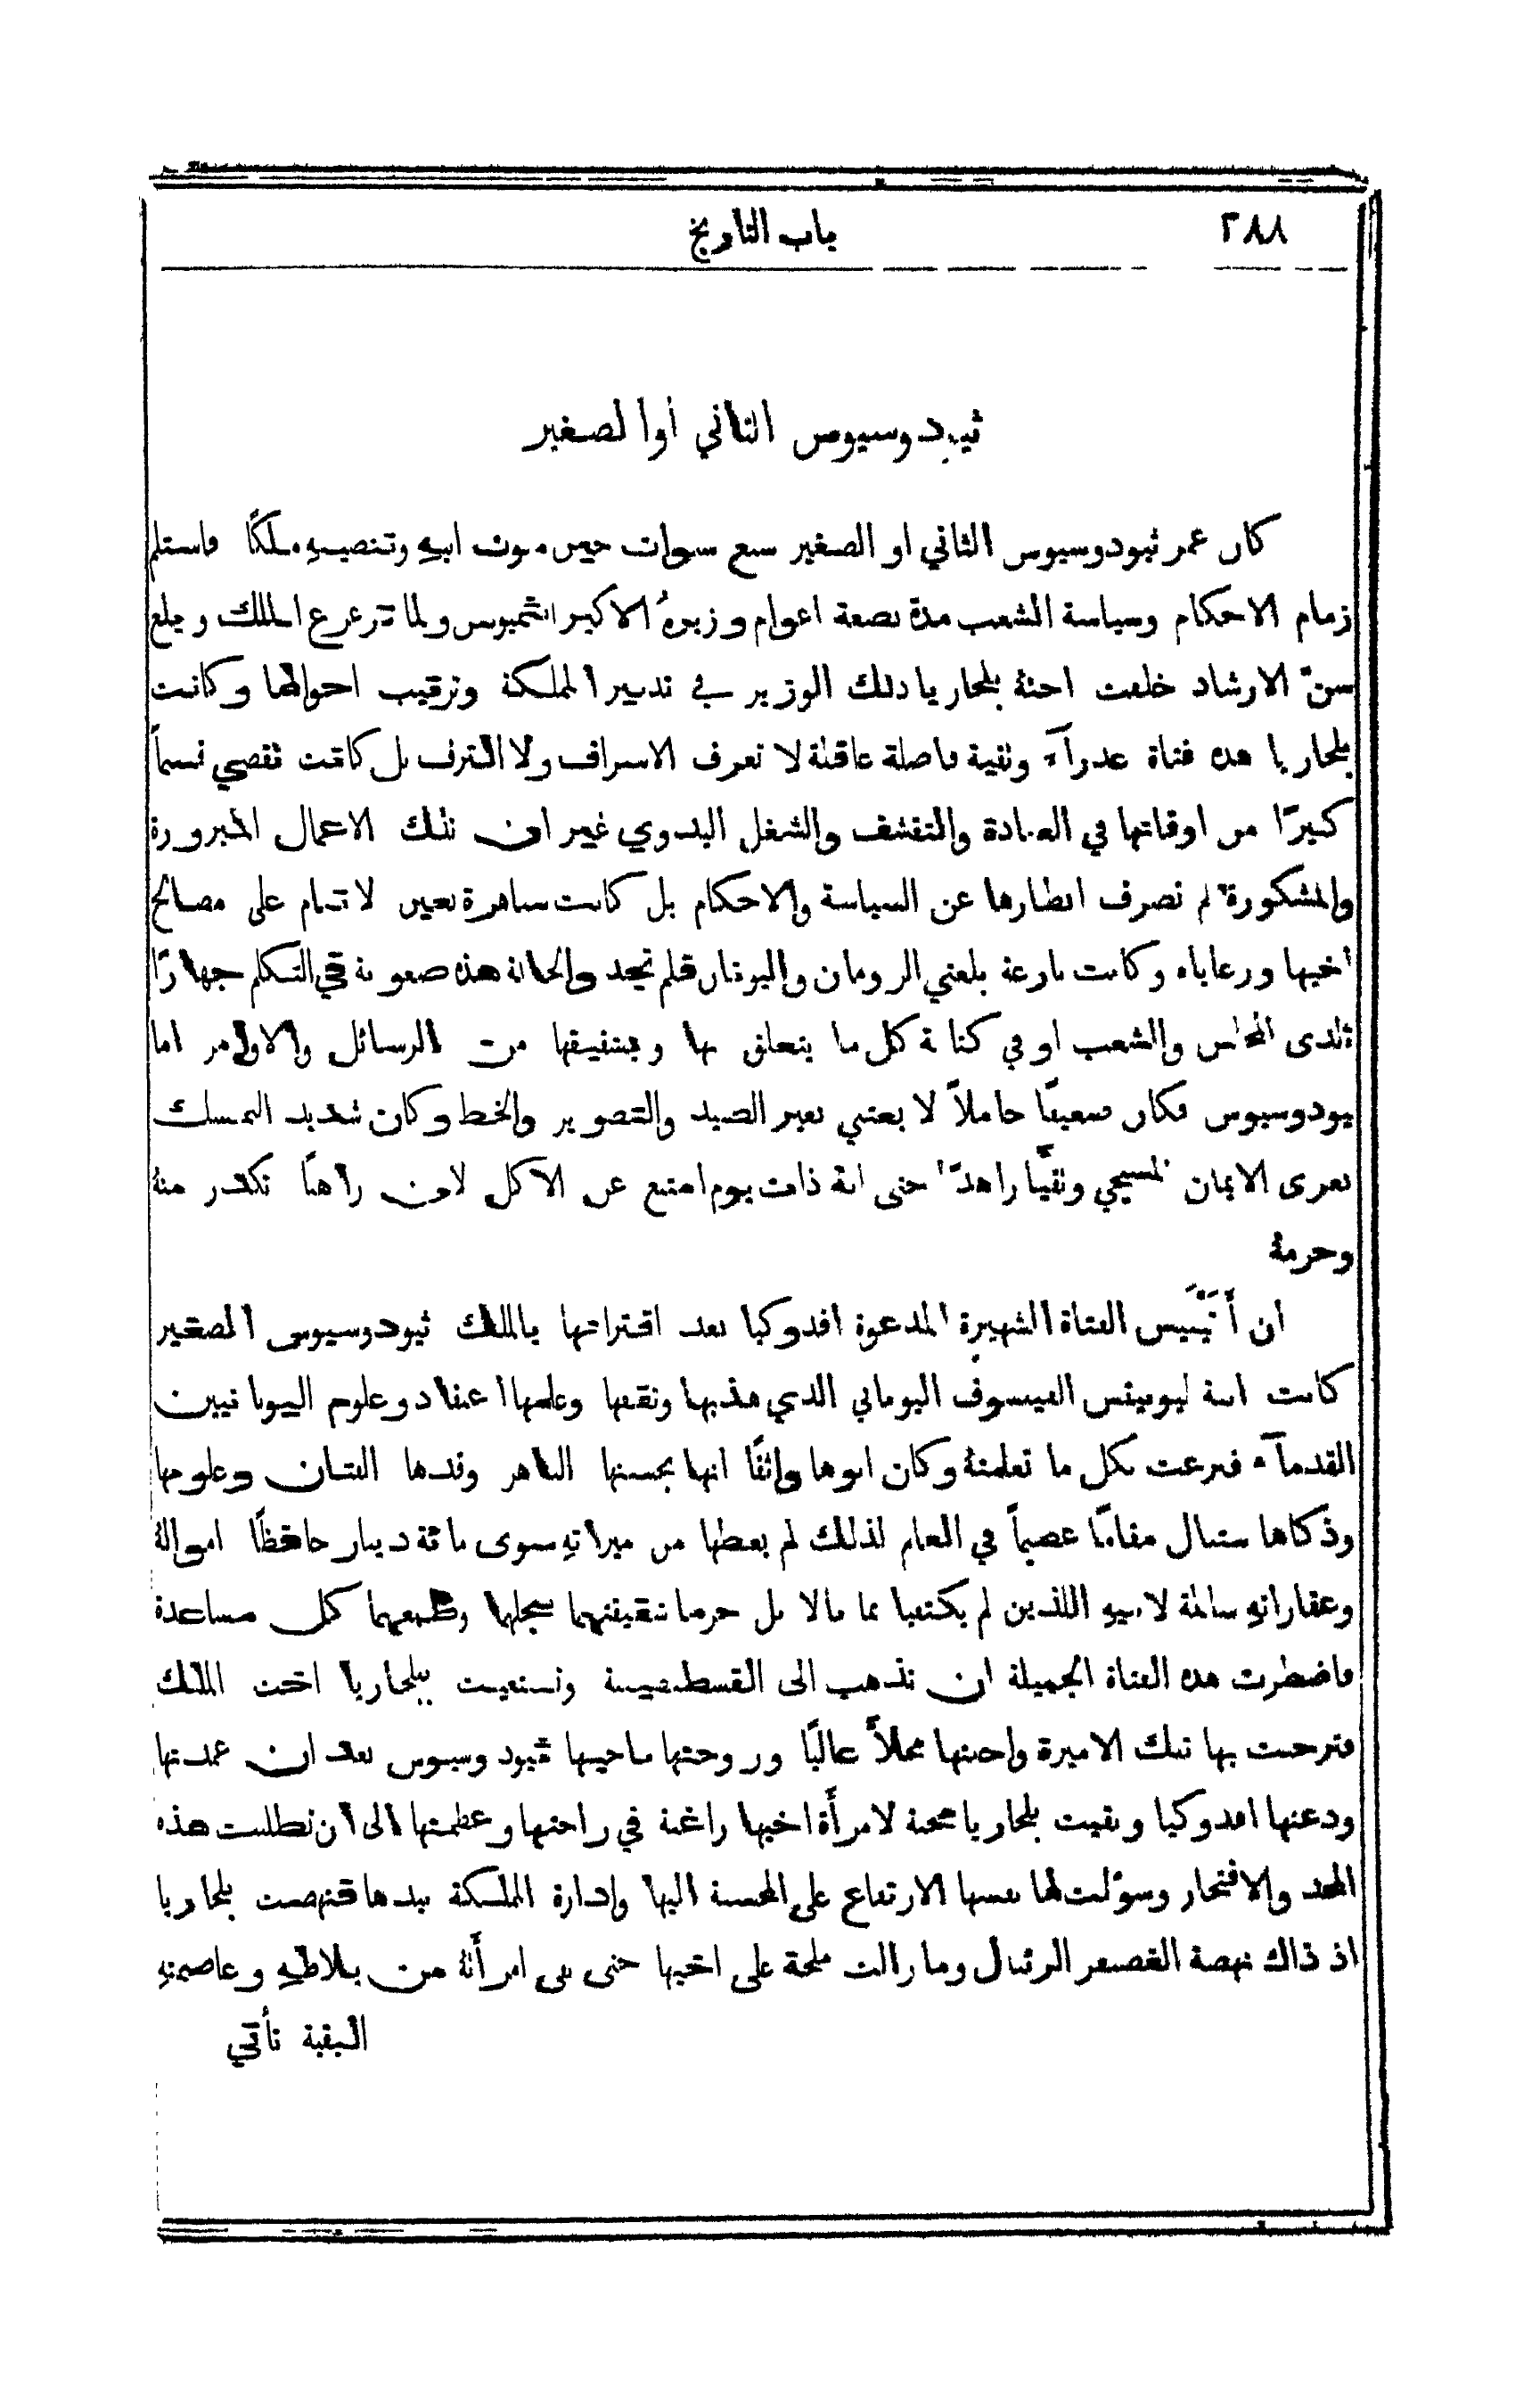 ٢٨٨ باب التاريخ
ثيودوسيوس الثاني او الصغير
كان عمر ثيودوسيوس الثاني او الصغير سبع سنوات حين موت ابيهِ وتنصيبهِ ملكًا فاستلم
زمام الاحكام وسياسة الشعب مدة بضعة اعوام وزيرهُ الاكبر انثميوس ولما ترعرع الملك وبلغ
سنّ الارشاد خلفت اختهُ بلخاريا ذلك الوزير في تدبير المملكة وترتيب احوالها وكانت
بلخاريا هذه فتاة عذرآء وتقية فاضلة عاقلة لا تعرف الاسراف ولا الترف بل كانت تقضي قسماً
كبيرًا من اوقاتها في العبادة والتقشف والشغل اليدوي غير ان تلك الاعمال المبرورة
والمشكورة لم تصرف انظارها عن السياسة والاحكام بل كانت ساهرة بعين لا تنام على مصالح
اخيها ورعاياه وكانت بارعة بلغتي الرومان واليونان فلم تجد والحالة هذه صعوبة في التكلم جهارًا
لدى المجلس والشعب او في كتابة كل ما يتعلق بها وبتنفيقها من الرسائل والاوامر اما
يودوسيوس فكان ضعيفًا خاملاً لا يعتني بغير الصيد والتصوير والخط وكان شديد التمسك
بعرى الايمان المسيحي وتقيًّا زاهدًا حتى انهُ ذات يوم امتنع عن الاكل لان راهبًا تكدر منهُ
وحرمهُ
ان أَثِنَيس الفتاة الشهيرة المدعوة افدوكيا بعد اقترانها بالملك ثيودوسيوس الصغير
كانت ابنة ليونيتس الفيلسوف اليوناني الذي هذبها وثقفها وعلمها اعتقاد وعلوم اليونانيين
القدمآء فبرعت بكل ما تعلمتهُ وكان ابوها واثقًا انها بحسنها الباهر وقدها الفتان وعلومها
وذكاها ستنال مقامًا عظيماً في العالم لذلك لم يعطها من ميراثهِ سوى مائة دينار حافظًا اموالهُ
وعقاراتهِ سالمة لابنيهِ اللذين لم يكتفيا بما نالا بل حرما شقيقتهما ببخلهما وطمعهما كل مساعدة
فاضطرت هذه الفتاة الجميلة ان تذهب الى القسطنطينية وتستغيث ببلخاريا اخت الملك
فترحبت بها تلك الاميرة واحلتها محلاً عاليًا وزوجتها باخيها ثيودوسيوس بعد ان عمدتها
ودعتها افدوكيا وبقيت بلخاريا محبة لامرأَة اخيها راغبة في راحتها وعظمتها الى ان تطلبت هذه
المجد والافتخار وسوَّلت لها نفسها الارتفاع على المحسنة اليها وادارة المملكة بيدها فنهضت بلخاريا
اذ ذاك نهضة الغضنفر الرئبال وما زالت ملحة على اخيها حتى نفى امرأَتهُ من بلاطهِ وعاصمتهِ
البقية تأتي